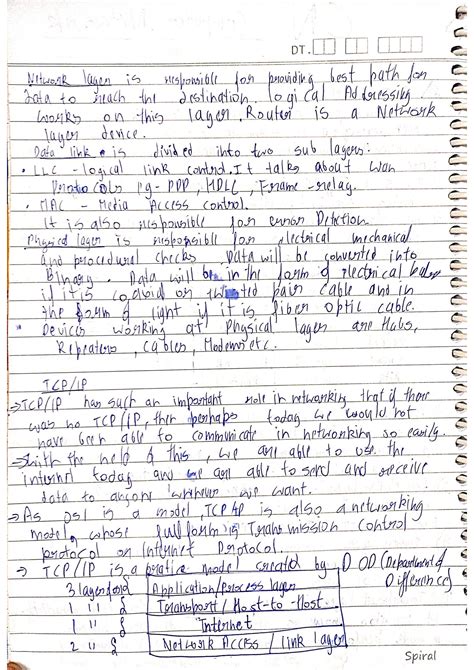 DT.
Network layer is responsible for providing best path for
data to reach the destination. logical Addressing
works on this layer. Router is a Network
layer device.
Data link is divided into two sub layers:
• LLC - logical link control. It talks about wan
Protocols eg- PPP, HDLC, Frame-relay.
• MAC - Media Access control.
It is also responsible for error Detection.
Physical layer is responsible for electrical mechanical
and procedural checks. Data will be converted into
Binary. Data will be in the form of electrical
if it is coaxial or twisted pair cable and in
the form of light if it is fiber optic cable.
Devices working at Physical layer are Hubs,
Repeaters, Cables, Modems etc.
TCP/IP
→TCP/IP has such an important role in networking that if there
was no TCP/IP, then perhaps today we would not
have been able to communicate in networking so easily.
→with the help of this, we are able to use the
internet today and we are able to send and receive
data to anyone wherever we want.
→As OSI is a model, TCP IP is also a networking
model, whose fullform is Transmission control
protocol or Internet Protocol.
→ TCP/IP is a model created by DOD (Department of
Difference)
3 layer of osi Application/process layer
1 " of Transport / Host-to-Host.
1 " of Internet
2 " of Network Access / link layer
Spiral